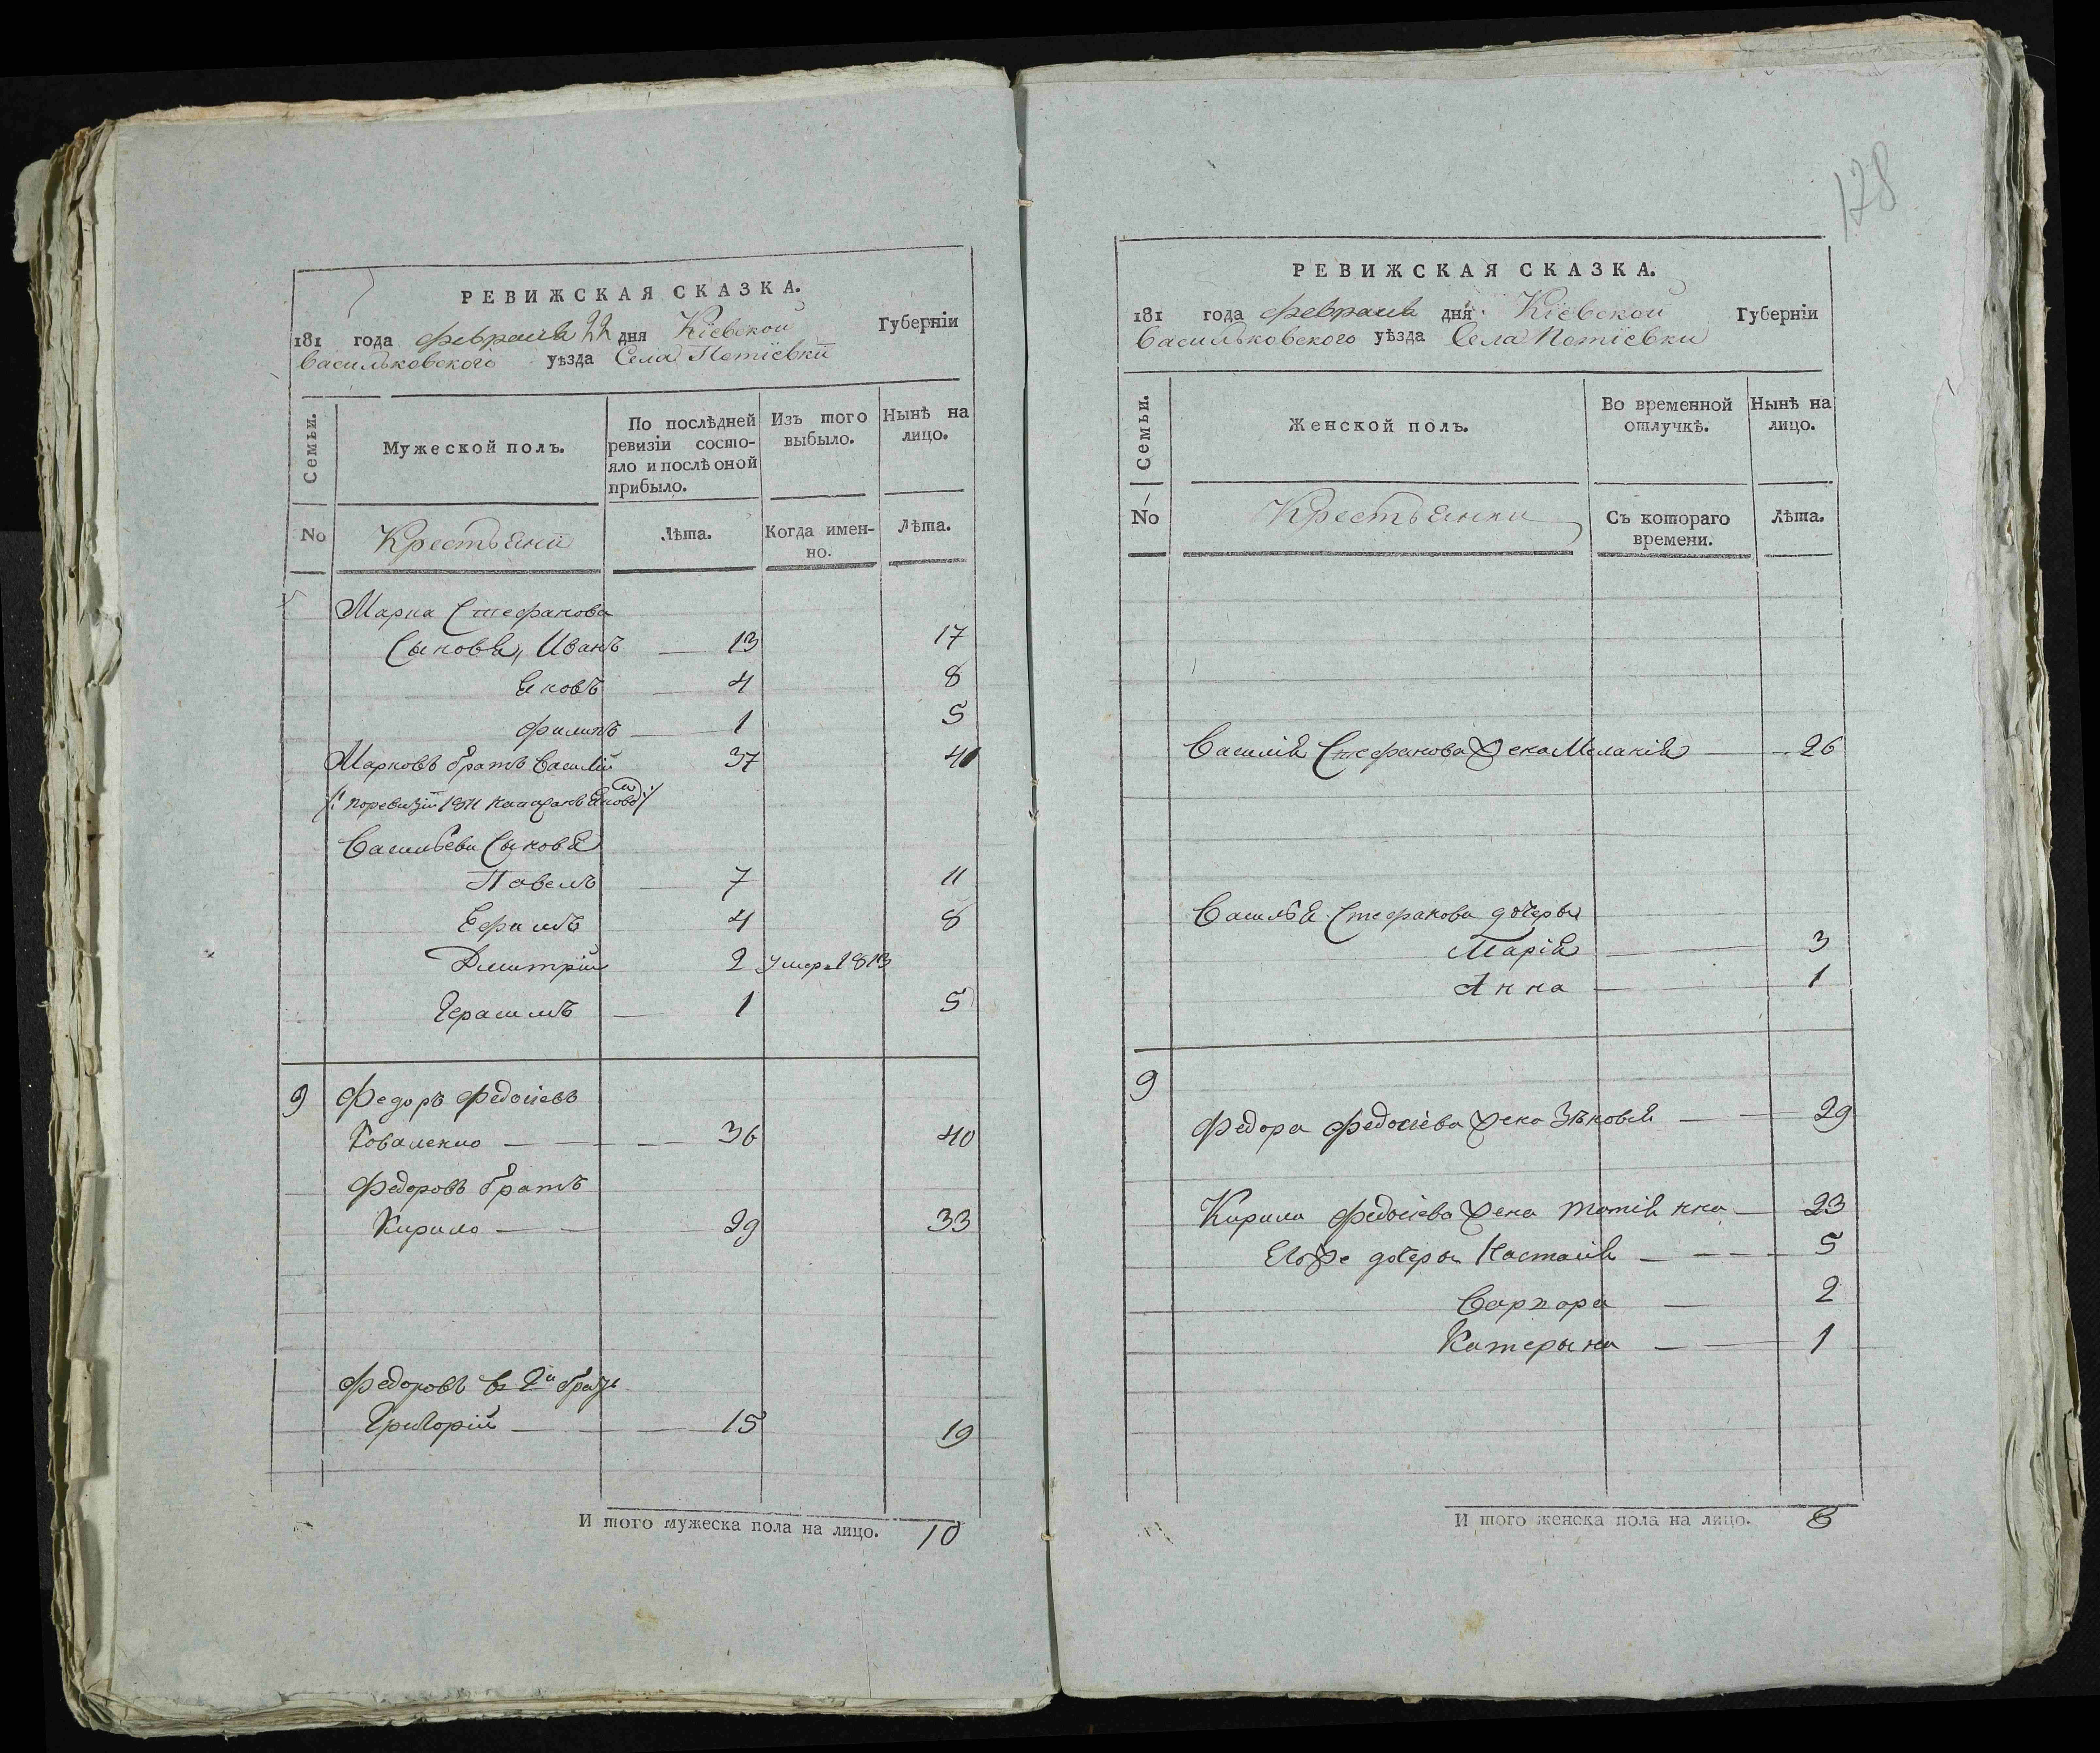 128
РЕВИЖСКАЯ СКАЗКА.
181 года февраля 22 дня Кіевской Губерніи
Васильковского уѣзда Села Потіевки
Семьи.
Мужеской полъ.
По послѣдней ревизіи состо-
яло и послѣ оной прибыло.
Изъ того выбыло.
Нынѣ на лицо.
No
Крестьяни
Лѣта.
Когда имен-
но.
Лѣта.
Марка Стефанова
Сыновя, Иванъ 13 17
Яковъ 4 8
Филипъ 1 5
Марковъ братъ Василій 37 41
по ревизіи 1811
Васильеви Сыновя
Павелъ 7 11
Ефимъ 4 8
Дмитрій 2 умеръ 1813
Герасимъ 1 5
9 Федоръ Федосіевъ
Коваленко 36 40
Федоровъ братъ
Кирило 29 33
Федоровъ 2й братъ
Григорій 15 19
И того мужеска пола на лицо. 10
РЕВИЖСКАЯ СКАЗКА.
181 года февраля дня Кіевской Губерніи
Васильковского уѣзда Села Потіевки
Семьи.
Женской полъ.
Во временной отлучкѣ.
Нынѣ на лицо.
No
Крестьянки
Съ котораго времени.
Лѣта.
Василія Стефанова жена Меланія 26
Василья Стефанова дочеры
Марія 3
Анна 1
9
Федора Федосіева жена Зѣновія 29
Кирила Федосіева жена Татіянна 23
Егоже дочеры Настасія 5
Варвара 2
Катерына 1
И того женска пола на лицо. 8